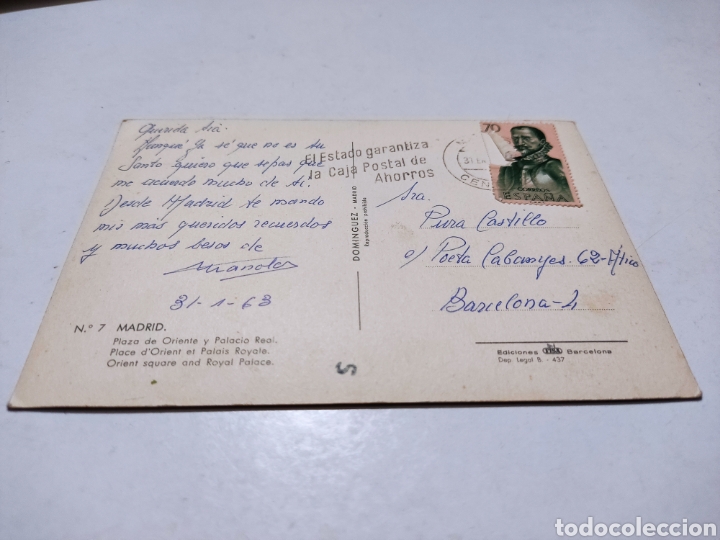 Querida tía:
Aunque ya sé que no es tu
Santo quiero que sepas que
me acuerdo mucho de ti.
Desde Madrid te mando
mis más queridos recuerdos
y muchos besos de
Manolo
31-1-63
N.º 7 MADRID.
Plaza de Oriente y Palacio Real.
Place d'Orient et Palais Royale.
Orient square and Royal Palace.
DOMINGUEZ - MADRID
Reproducción prohibida
El Estado garantiza
la Caja Postal de
Ahorros
31
CEN
70
CORREOS
ESPAÑA
Sra.
Pura Castillo
c/ Poeta Cabanyes. 62-Ático
Barcelona-4
Ediciones Barcelona
Dep. Legal B. - 437
5
todocoleccion